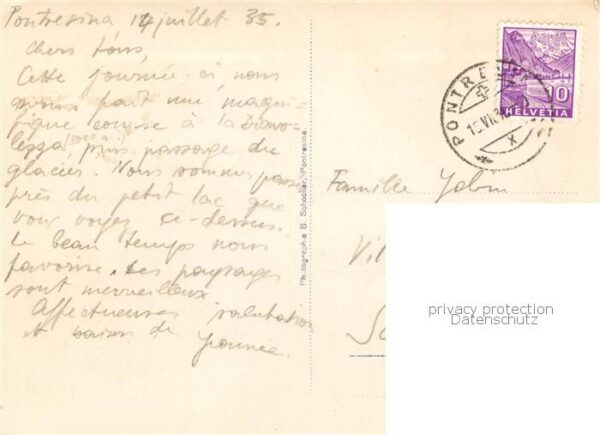 Pontresina 14 juillet 35.
Chers tous,
Cette journée-ci nous
avons fait une magni-
fique course à la Diavo-
lezza (3000 m) puis passage du
glacier. Nous sommes passé
près du petit lac que
vous voyez ci-dessus.
Le beau temps nous
favorise. Les paysages
sont merveilleux
Affectueuses salutations
et baisers de
Photographie B. Schocher, Pontresina
PONTRESINA
X
10
HELVETIA
Famille
Vil
privacy protection
Datenschutz